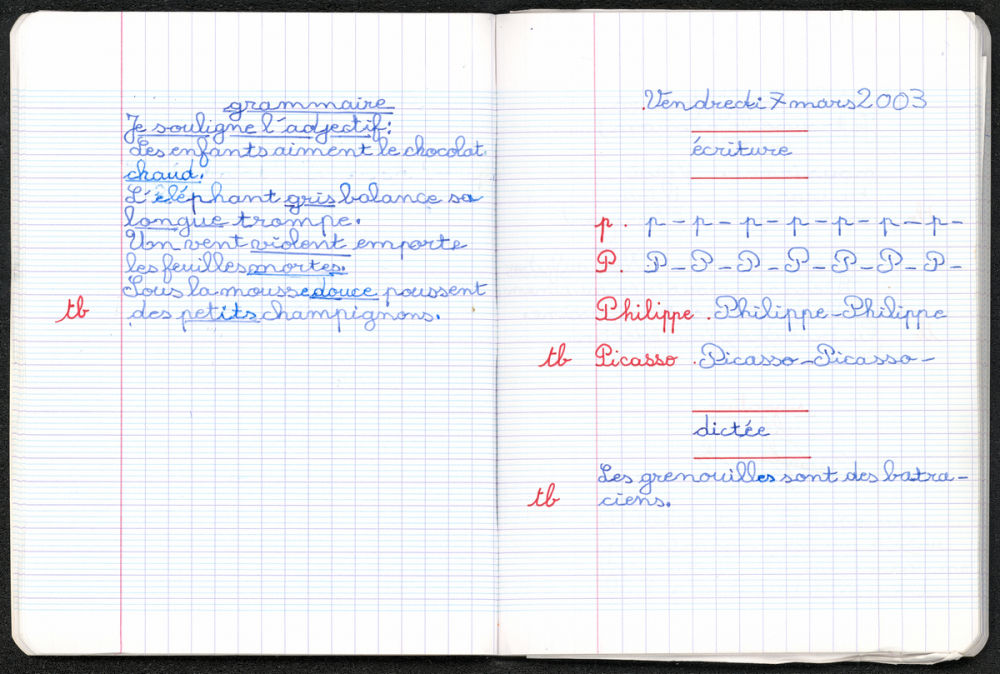 grammaire
Je souligne l'adjectif :
Les enfants aiment le chocolat
chaud.
L'éléphant gris balance sa
longue trompe.
Un vent violent emporte
les feuilles mortes.
Sous la mousse douce poussent
tb des petits champignons.
Vendredi 7 mars 2003
écriture
p. p-p-p-p-p-p-p-
P. P-P-P-P-P-P-P-
Philippe. Philippe-Philippe
tb Picasso. Picasso-Picasso-
dictée
Les grenouilles sont des batra-
tb ciens.